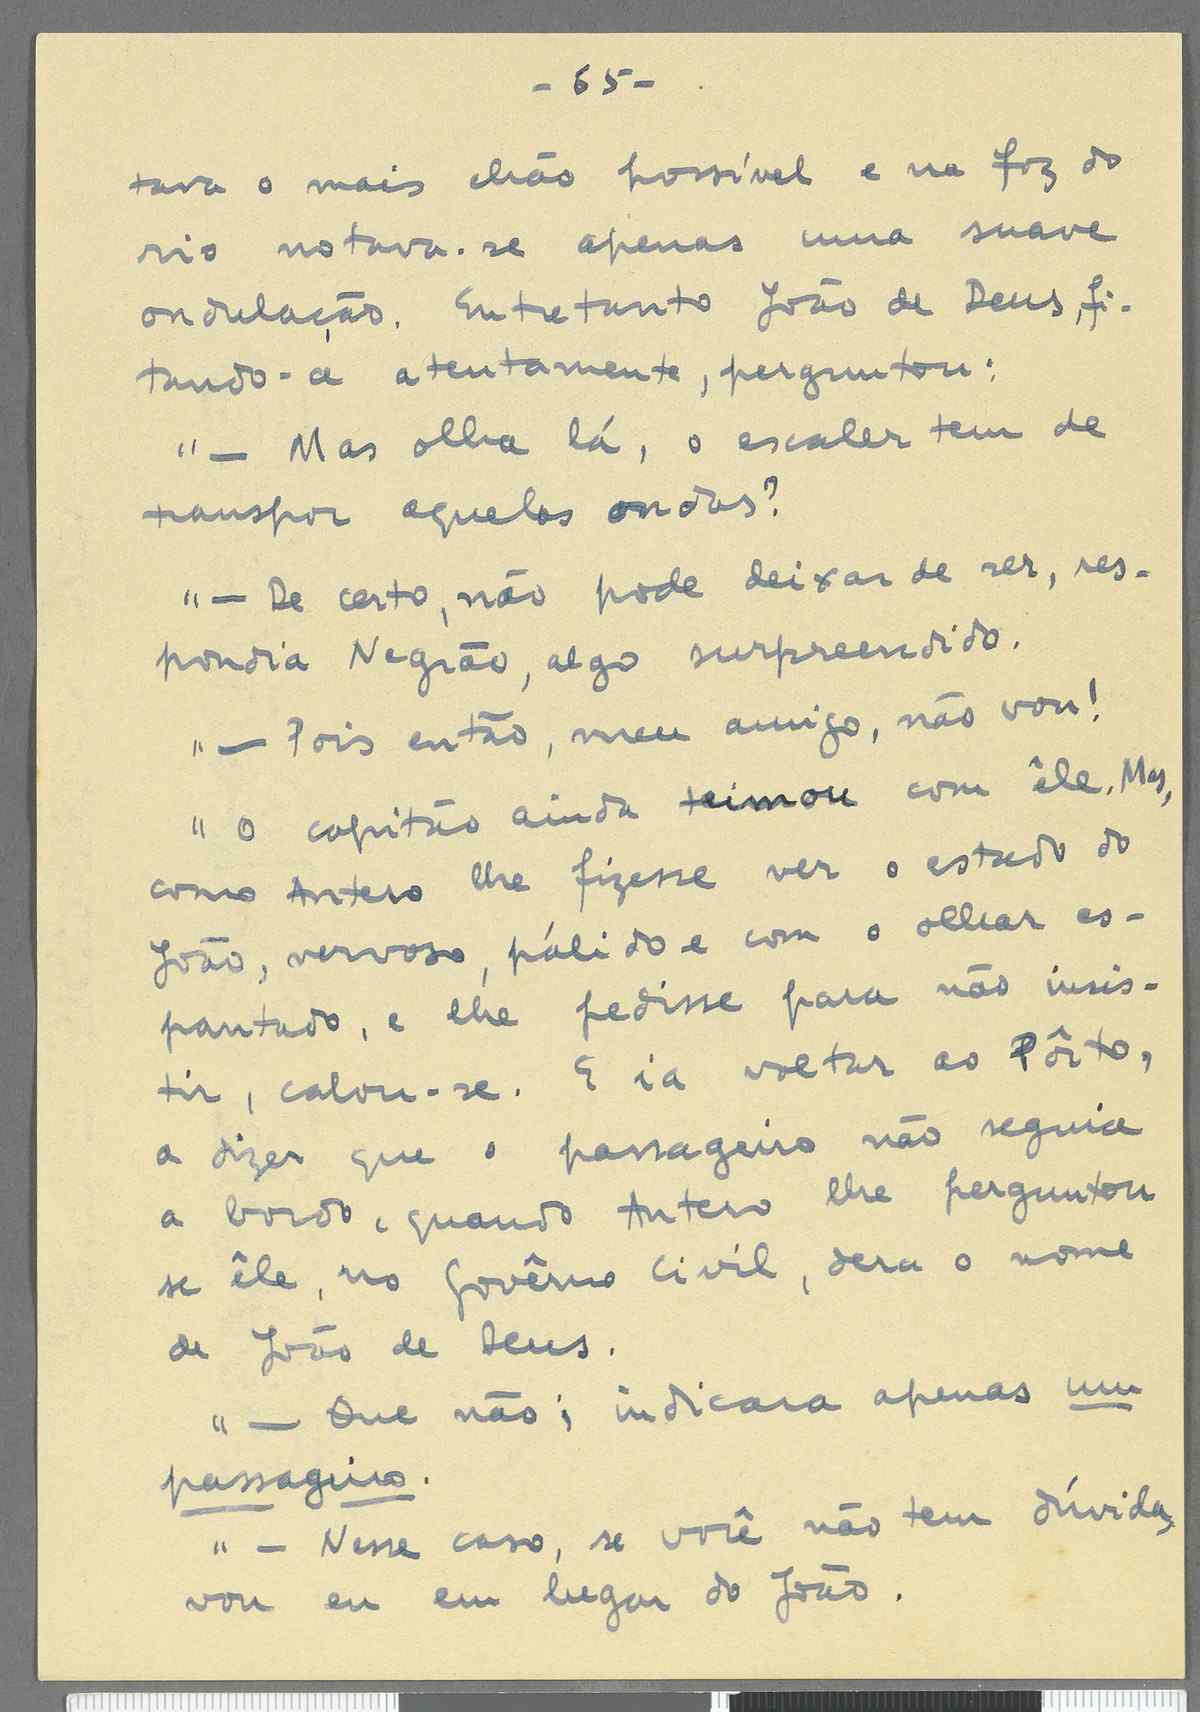 - 65 -
tava o mais chão possível e na foz do
rio notava-se apenas uma suave
ondulação. Entretanto João de Deus, fi-
tando-a atentamente, perguntou:
"— Mas olha lá, o escaler tem de
transpor aquelas ondas?
"— De certo, não pode deixar de ser, res-
pondia Negrão, algo surpreendido.
"— Pois então, meu amigo, não vou!
"O capitão ainda teimou com êle. Mas,
como Antero lhe fizesse ver o estado do
João, nervoso, pálido e com o olhar es-
pantado, e lhe pedisse para não insis-
tir, calou-se. E ia voltar ao Pôrto,
a dizer que o passageiro não seguia
a bordo, quando Antero lhe perguntou
se êle, no Govêrno Civil, dera o nome
de João de Deus.
"— Que não; indicara apenas um
passageiro.
"— Nesse caso, se você não tem dúvida,
vou eu em lugar do João.